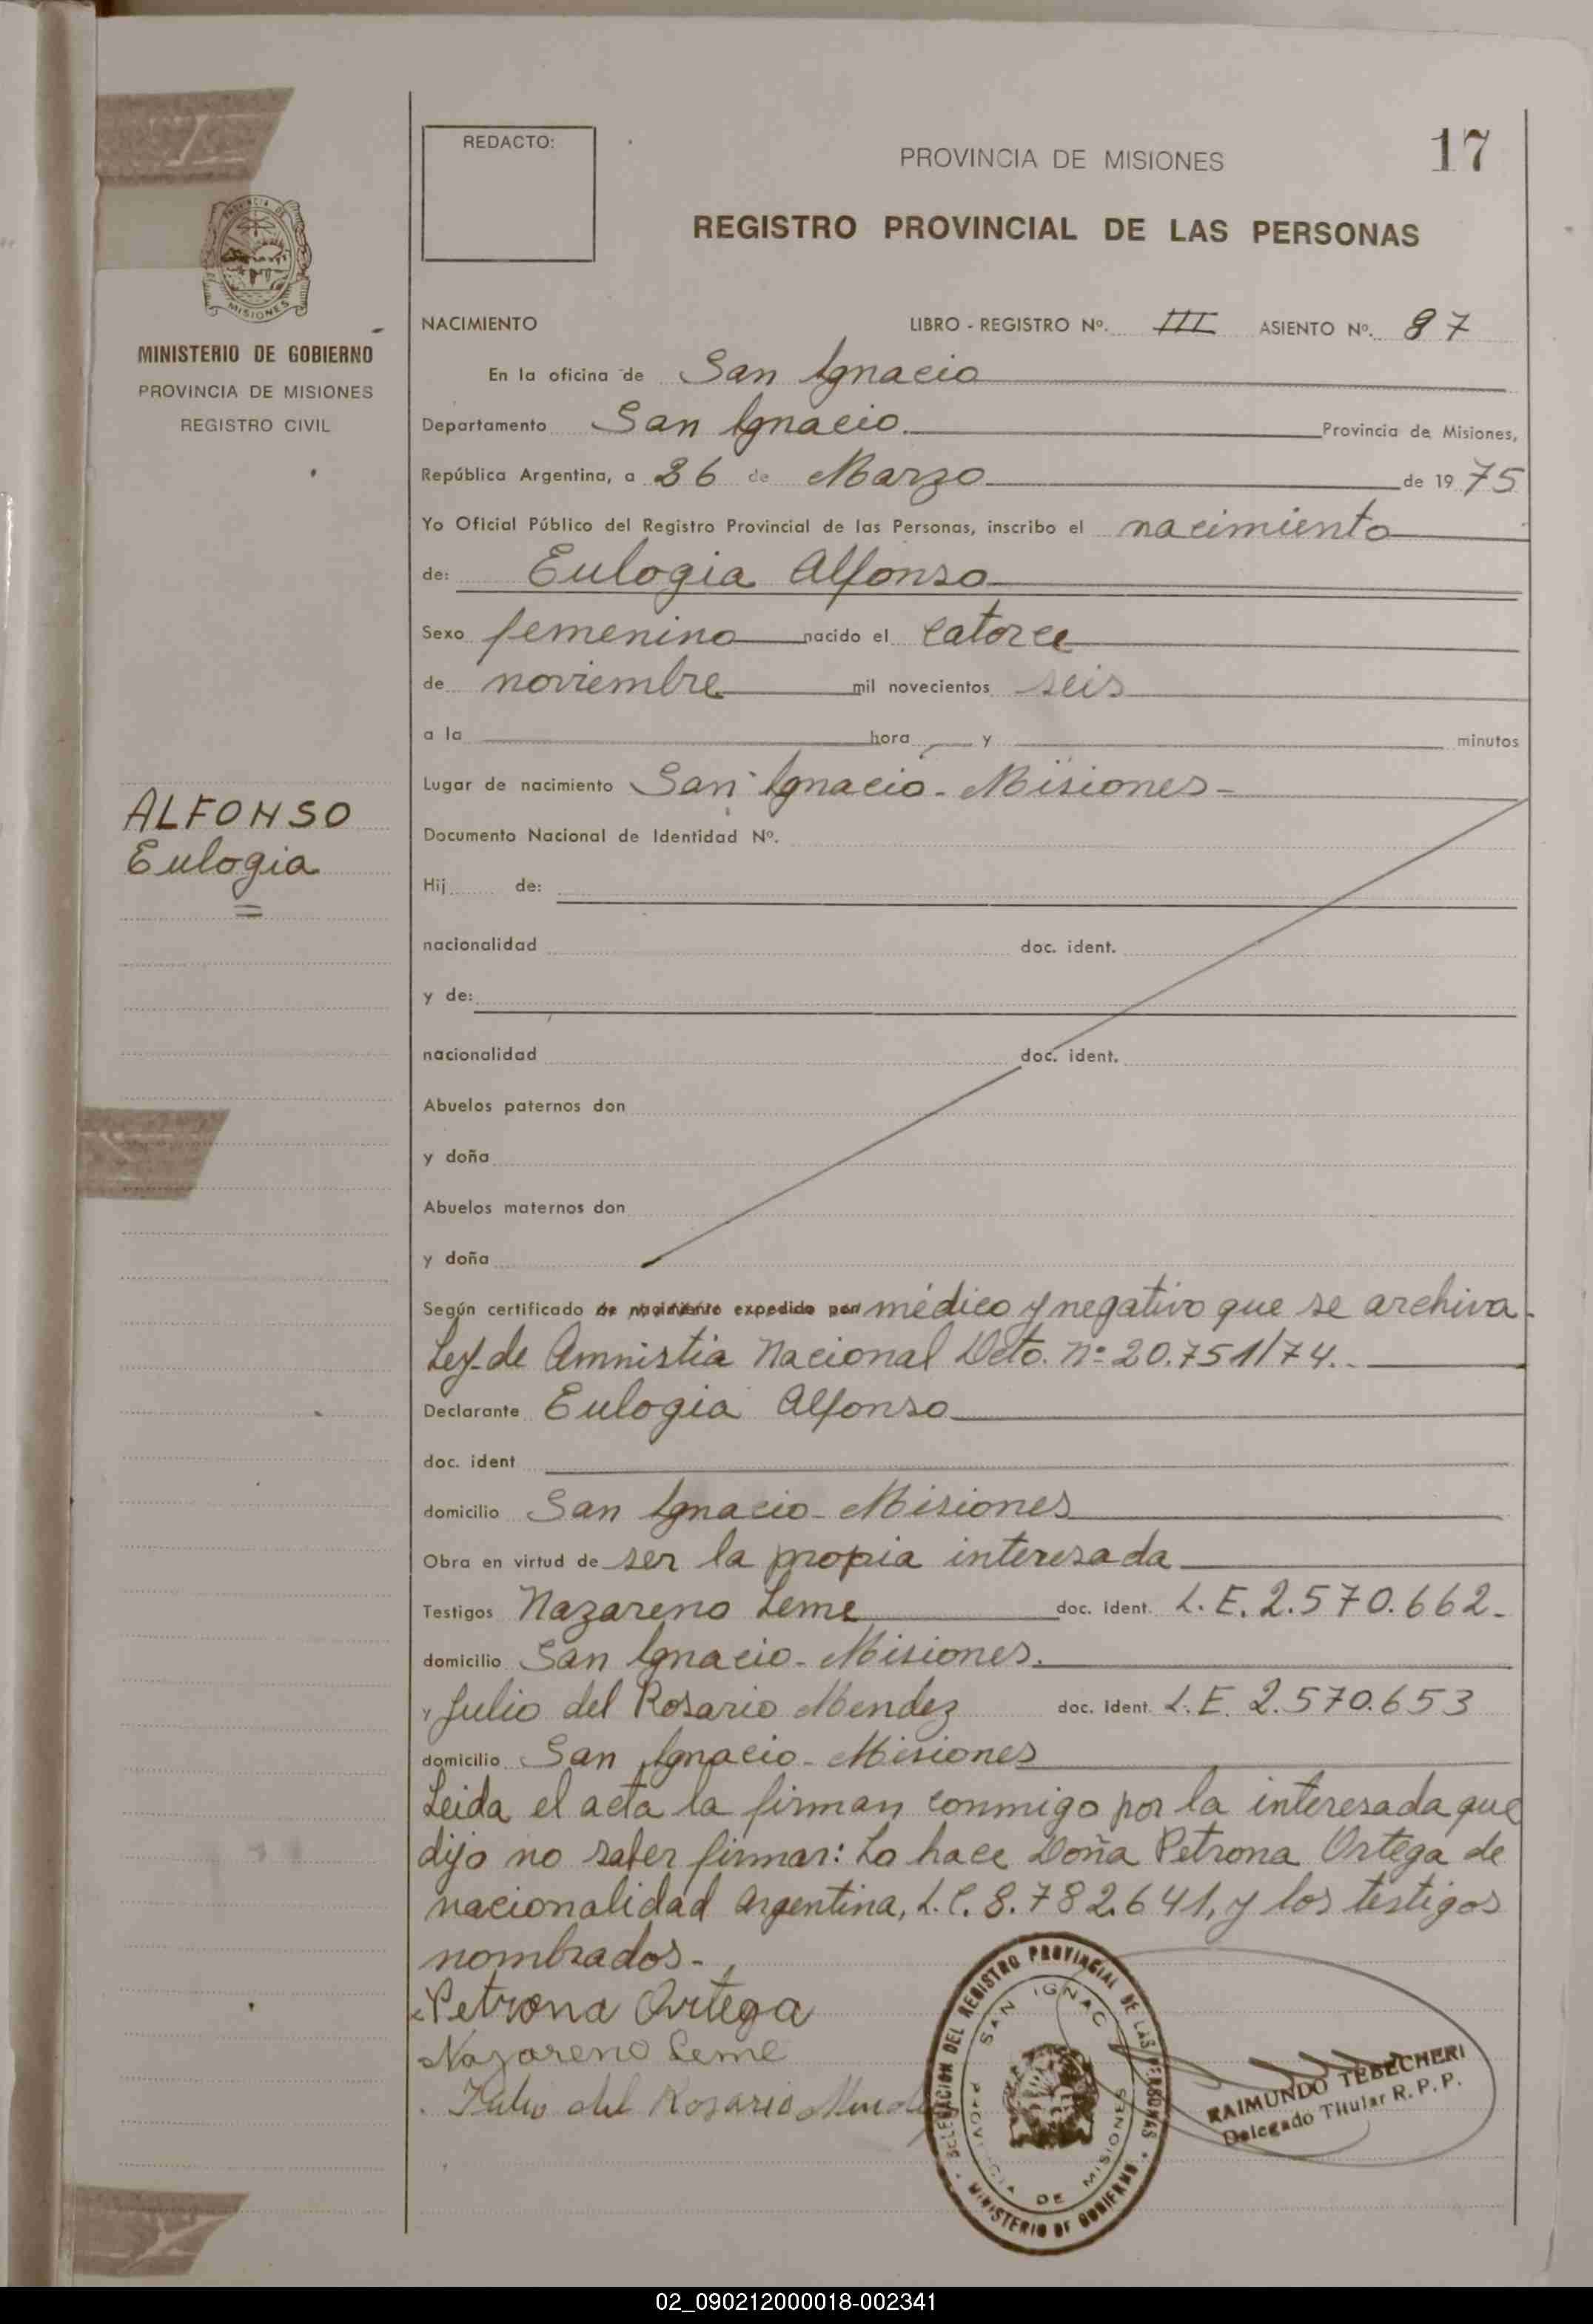 REDACTO:
PROVINCIA DE MISIONES
17
REGISTRO PROVINCIAL DE LAS PERSONAS
PROVINCIA DE
MISIONES
MINISTERIO DE GOBIERNO
PROVINCIA DE MISIONES
REGISTRO CIVIL
NACIMIENTO LIBRO - REGISTRO Nº. III ASIENTO Nº. 87
En la oficina de San Ignacio
Departamento San Ignacio. Provincia de Misiones,
República Argentina, a 26 de Marzo de 1975
Yo Oficial Público del Registro Provincial de las Personas, inscribo el nacimiento
de: Eulogia Alfonso
Sexo femenino nacido el catorce
de noviembre mil novecientos seis
a la hora y minutos
Lugar de nacimiento San Ignacio - Misiones -
ALFONSO
Eulogia
Documento Nacional de Identidad Nº.
Hij de:
nacionalidad doc. ident.
y de:
nacionalidad doc. ident.
Abuelos paternos don
y doña
Abuelos maternos don
y doña
Según certificado de nacimiento expedido por médico y negativo que se archiva.
Ley de Amnistia Nacional Dcto. Nº 20.751/74.
Declarante Eulogia Alfonso
doc. ident
domicilio San Ignacio - Misiones
Obra en virtud de ser la propia interesada
Testigos Nazareno Leme doc. ident. L.E. 2.570.662-
domicilio San Ignacio - Misiones.
y Julio del Rosario Mendez doc. ident. L.E. 2.570.653
domicilio San Ignacio - Misiones
Leida el acta la firman conmigo por la interesada que
dijo no saber firmar: Lo hace Doña Petrona Ortega de
nacionalidad Argentina, L.C. 8.782.641, y los testigos
nombrados-
Petrona Ortega
Nazareno Leme
Julio del Rosario Mendez
DELEGACION DEL REGISTRO PROVINCIAL DE LAS PERSONAS
MINISTERIO DE GOBIERNO
SAN IGNACIO
PROVINCIA DE MISIONES
RAIMUNDO TEBECHERI
Delegado Titular R.P.P.
02_090212000018-002341